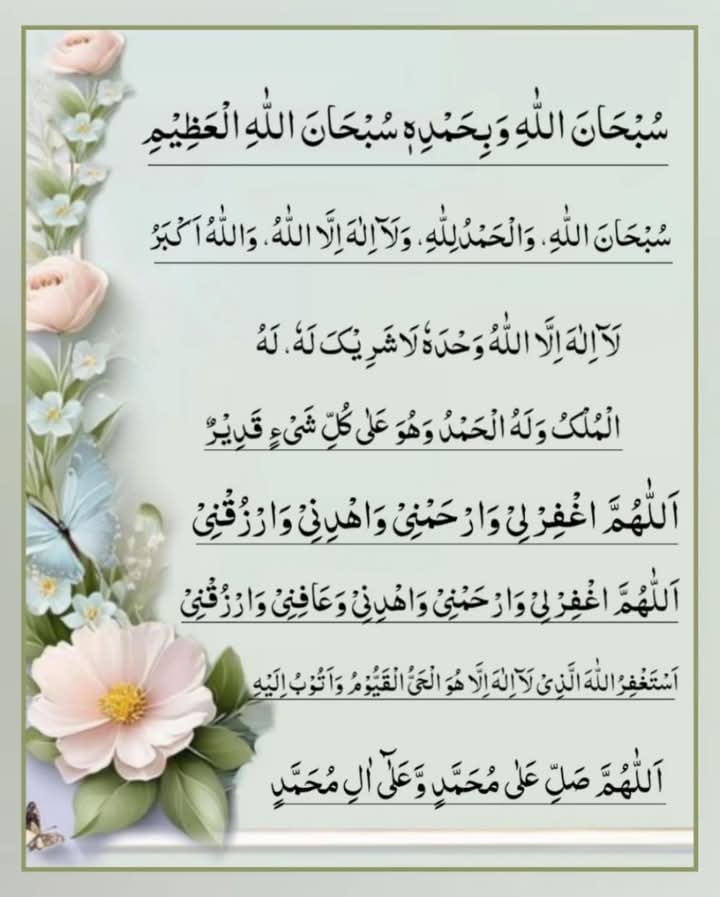 سُبْحَانَ اللّٰهِ وَبِحَمْدِهٖ سُبْحَانَ اللّٰهِ الْعَظِيْمِ
سُبْحَانَ اللّٰهِ، وَالْحَمْدُلِلّٰهِ، وَلَآ اِلٰهَ اِلَّا اللّٰهُ، وَاللّٰهُ اَكْبَرُ
لَآ اِلٰهَ اِلَّا اللّٰهُ وَحْدَهٗ لَا شَرِيْكَ لَهٗ، لَهُ
الْمُلْكُ وَلَهُ الْحَمْدُ وَهُوَ عَلٰى كُلِّ شَىْءٍ قَدِيْرٌ
اَللّٰهُمَّ اغْفِرْ لِيْ وَارْحَمْنِيْ وَاهْدِنِيْ وَارْزُقْنِيْ
اَللّٰهُمَّ اغْفِرْ لِيْ وَارْحَمْنِيْ وَاهْدِنِيْ وَعَافِنِيْ وَارْزُقْنِيْ
اَسْتَغْفِرُ اللّٰهَ الَّذِىْ لَآ اِلٰهَ اِلَّا هُوَ الْحَىُّ الْقَيُّوْمُ وَاَتُوْبُ اِلَيْهِ
اَللّٰهُمَّ صَلِّ عَلٰى مُحَمَّدٍ وَّعَلٰٓى اٰلِ مُحَمَّدٍ